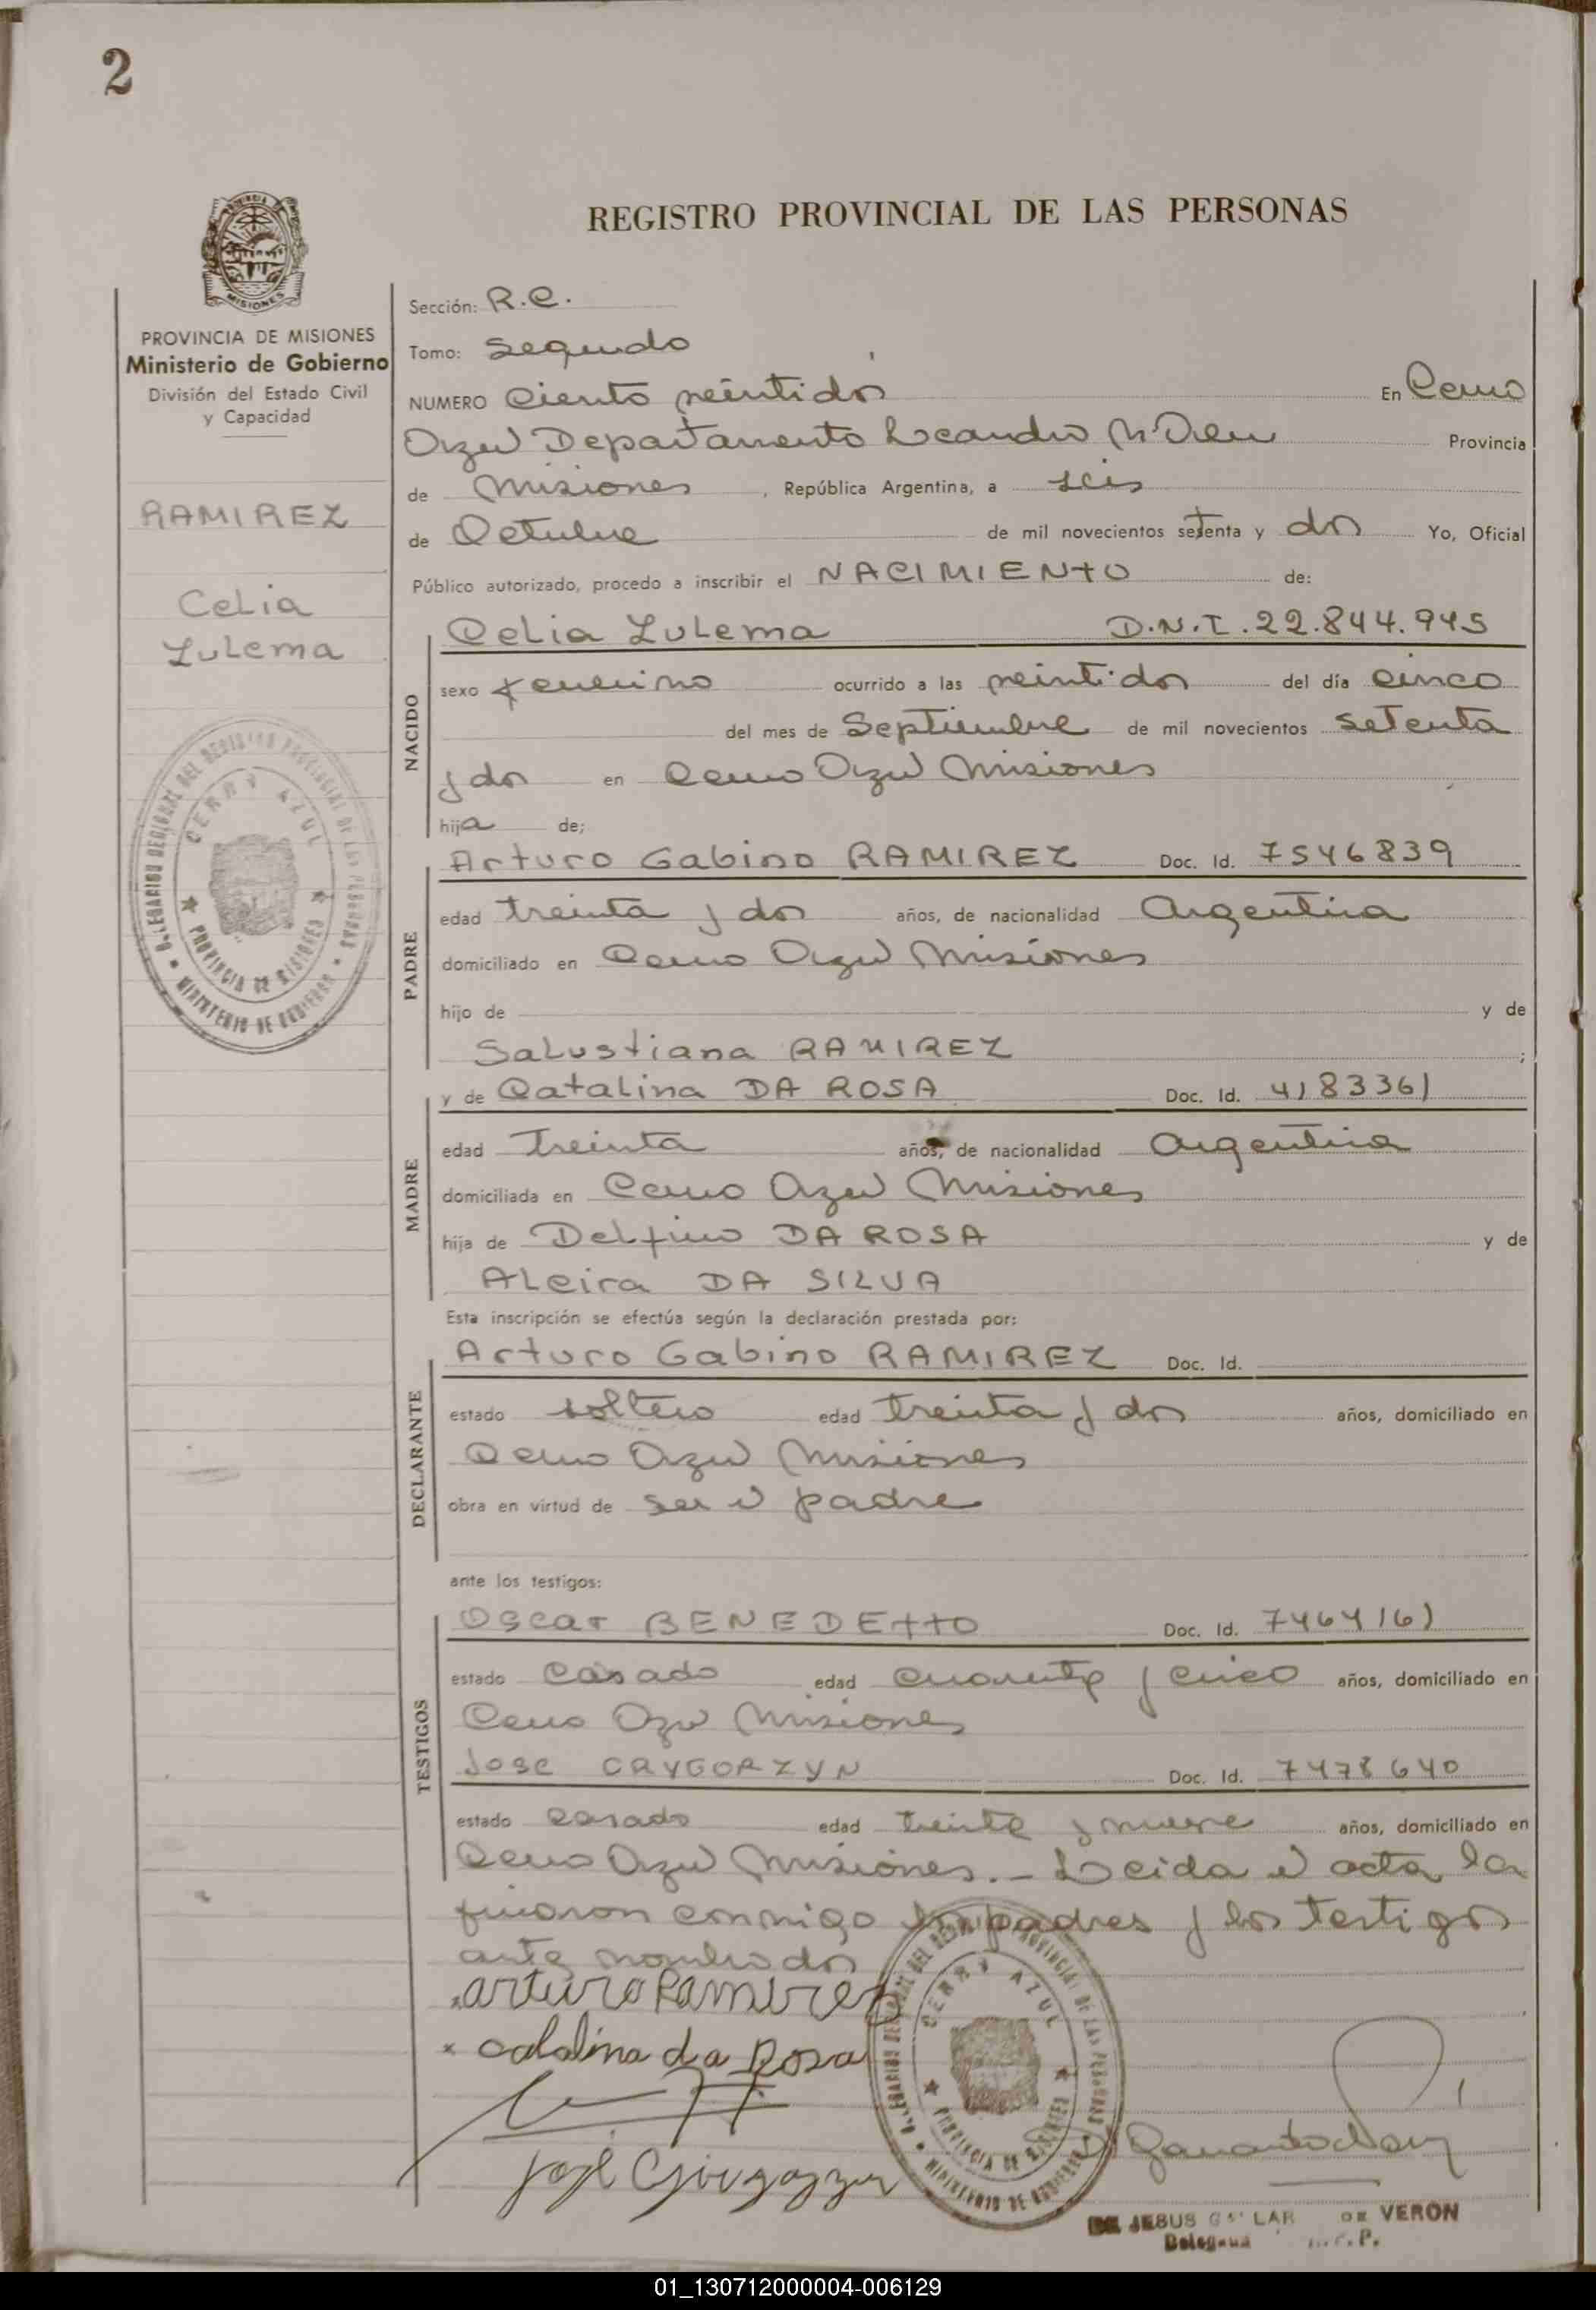 2
REGISTRO PROVINCIAL DE LAS PERSONAS
MISIONES
PROVINCIA DE MISIONES
Ministerio de Gobierno
División del Estado Civil
y Capacidad
RAMIREZ
Celia
Zulema
CERRO AZUL
PROVINCIA DE MISIONES
MINISTERIO DE GOBIERNO
Sección: R.C.
Tomo: Segundo
NUMERO Ciento veintidós En Cerro
Azul Departamento Leandro N. Alem Provincia
de Misiones, República Argentina, a seis
de Octubre de mil novecientos setenta y dos Yo, Oficial
Público autorizado, procedo a inscribir el NACIMIENTO de:
NACIDO
Celia Zulema D.N.I. 22.844.945
sexo femenino ocurrido a las veintidos del día cinco
del mes de Septiembre de mil novecientos setenta
y dos en Cerro Azul Misiones
hija de;
PADRE
Arturo Gabino RAMIREZ Doc. Id. 7546839
edad treinta y dos años, de nacionalidad Argentina
domiciliado en Cerro Azul Misiones
hijo de y de
Salustiana RAMIREZ ;
MADRE
y de Catalina DA ROSA Doc. Id. 4183361
edad treinta años, de nacionalidad Argentina
domiciliada en Cerro Azul Misiones
hija de Delfino DA ROSA y de
Alcira DA SILVA
Esta inscripción se efectúa según la declaración prestada por:
DECLARANTE
Arturo Gabino RAMIREZ Doc. Id.
estado soltero edad treinta y dos años, domiciliado en
Cerro Azul Misiones
obra en virtud de ser el padre
ante los testigos:
TESTIGOS
Oscar BENEDETTO Doc. Id. 7464161
estado casado edad cuarenta y cinco años, domiciliado en
Cerro Azul Misiones
Jose GRYGORZYN Doc. Id. 7478640
estado casado edad treinta y nueve años, domiciliado en
Cerro Azul Misiones.- Leida el acta la
firmaron conmigo los padres y los testigos
ante nombrados
arturo Ramirez
catalina da Rosa
CERRO AZUL
PROVINCIA DE MISIONES
MINISTERIO DE GOBIERNO
José
DE JESUS DE VERON
01_130712000004-006129